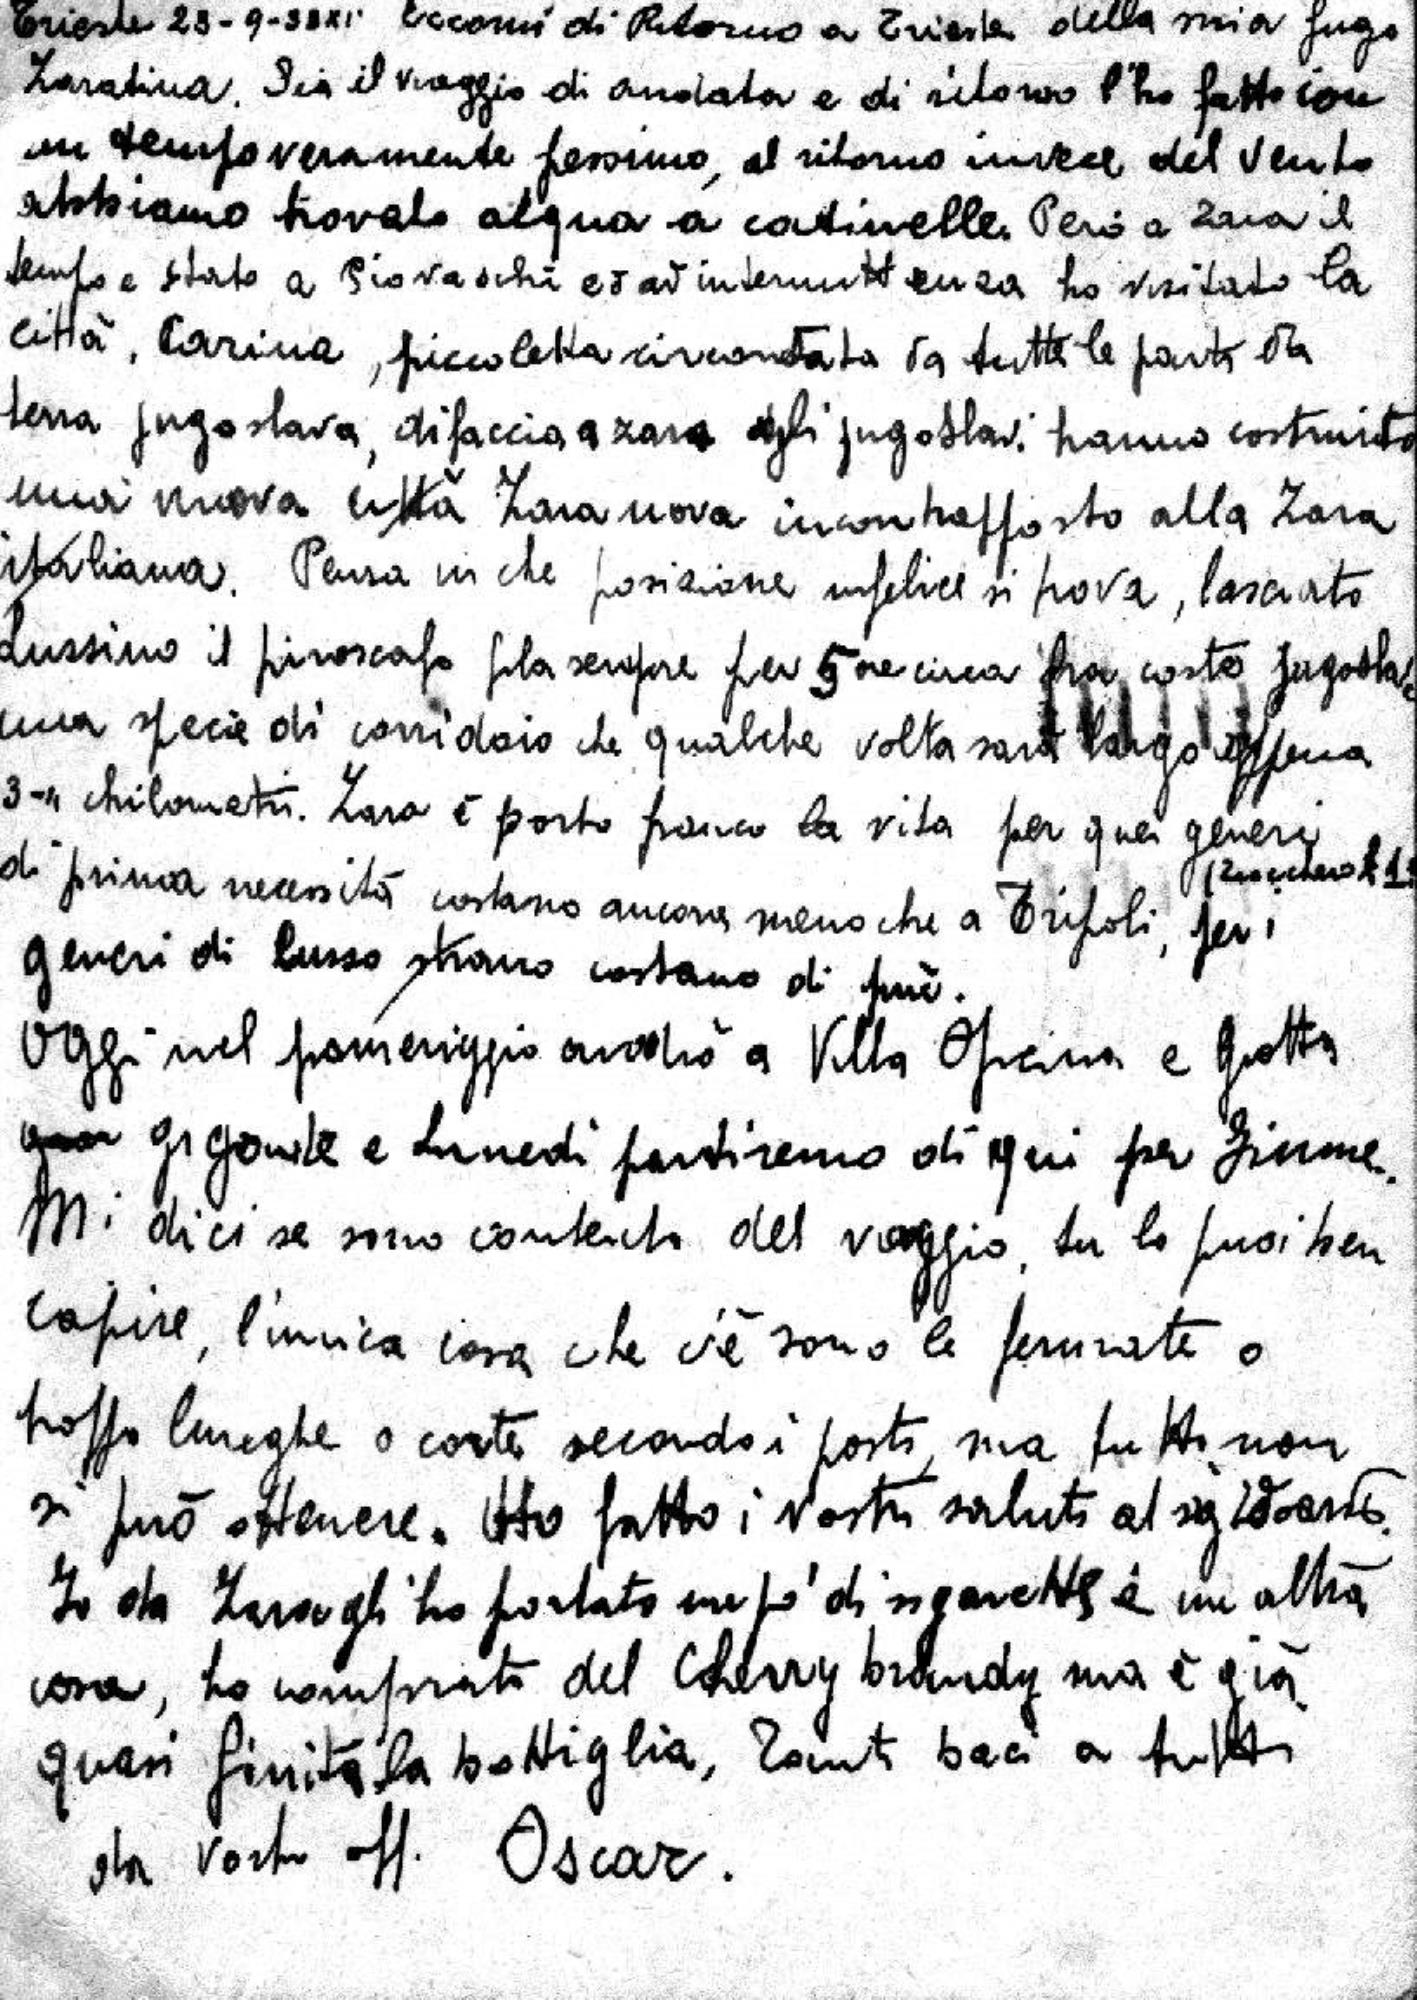 Trieste 23-9-33XI Eccomi di Ritorno a Trieste della mia fuga
Zaratina. Sia il viaggio di andata e di ritorno l'ho fatto con
un tempo veramente pessimo, al ritorno invece del vento
abbiamo trovato alqua a catinelle. Però a Zara il
tempo e stato a piovaschi ed ad intermittenza ho visitato la
città. Carina, piccoletta circondata da tutte le parti da
terra jugoslava, difaccia a zara gli jugoslavi hanno costruito
una nuova città Zara nova incontrapposto alla Zara
italiana. Pensa in che posizione infelice si trova, lasciato
Lussino il piroscafo fila sempre per 5 ore circa fra coste jugoslave
una specie di corridoio che qualche volta sarà largo appena
3-4 chilometri. Zara è porto franco la vita per quei generi
di prima necessità costano ancora meno che a Tripoli, (zucchero per i
generi di lusso strano costano di più.
Oggi nel pomeriggio andrò a Villa Opicina e Grotta
gigante e Lunedi partiremo di qui per Fiume.
Mi dici se sono contento del viaggio, tu lo puoi ben
capire, l'unica cosa che c'è sono le fermate o
troppo lunghe o corte secondo i posti, ma tutto non
si può ottenere. Ho fatto i Vostri saluti al sig
Io da Zara gli ho portato un pò' di sigarette è un altra
cosa, ho comprato del Cherry brandy ma è già
quasi finita la bottiglia, Tanti baci a tutti
da Vostro aff. Oscar.